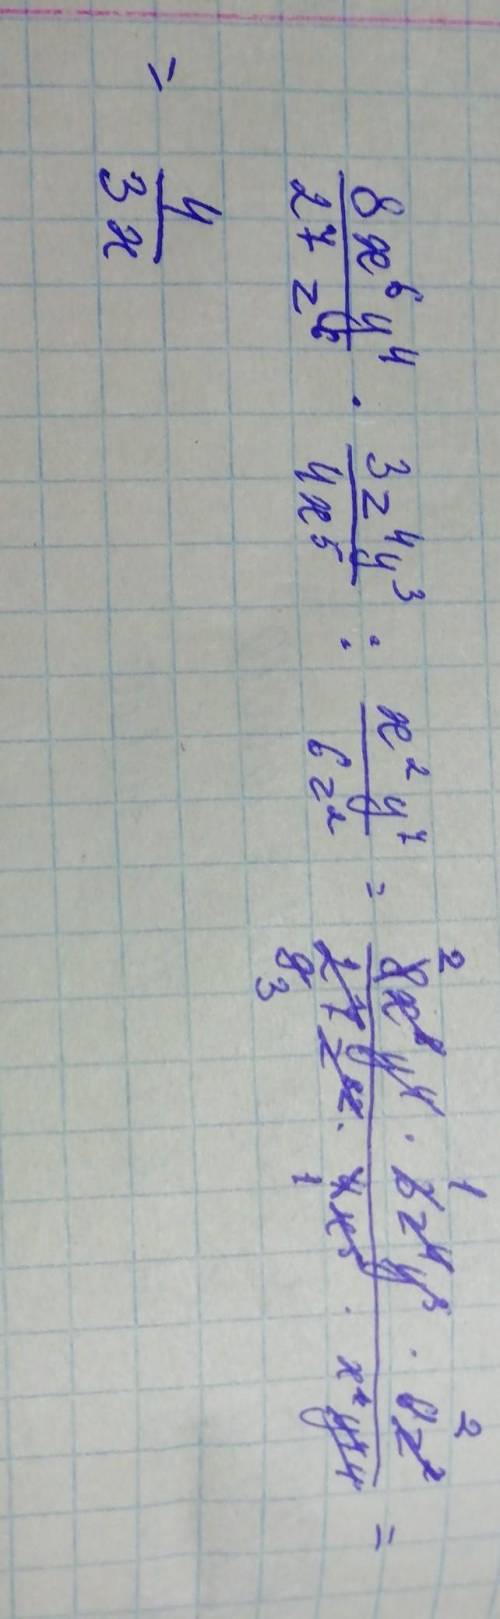 8x⁶y⁴/27z⁶ · 3z⁴y³/4x⁵ : x²y⁷/6z² = 8x⁶y⁴ · 3z⁴y³ · 6z²/27z⁶ · 4x⁵ · x²y⁷ =
= 4/3x